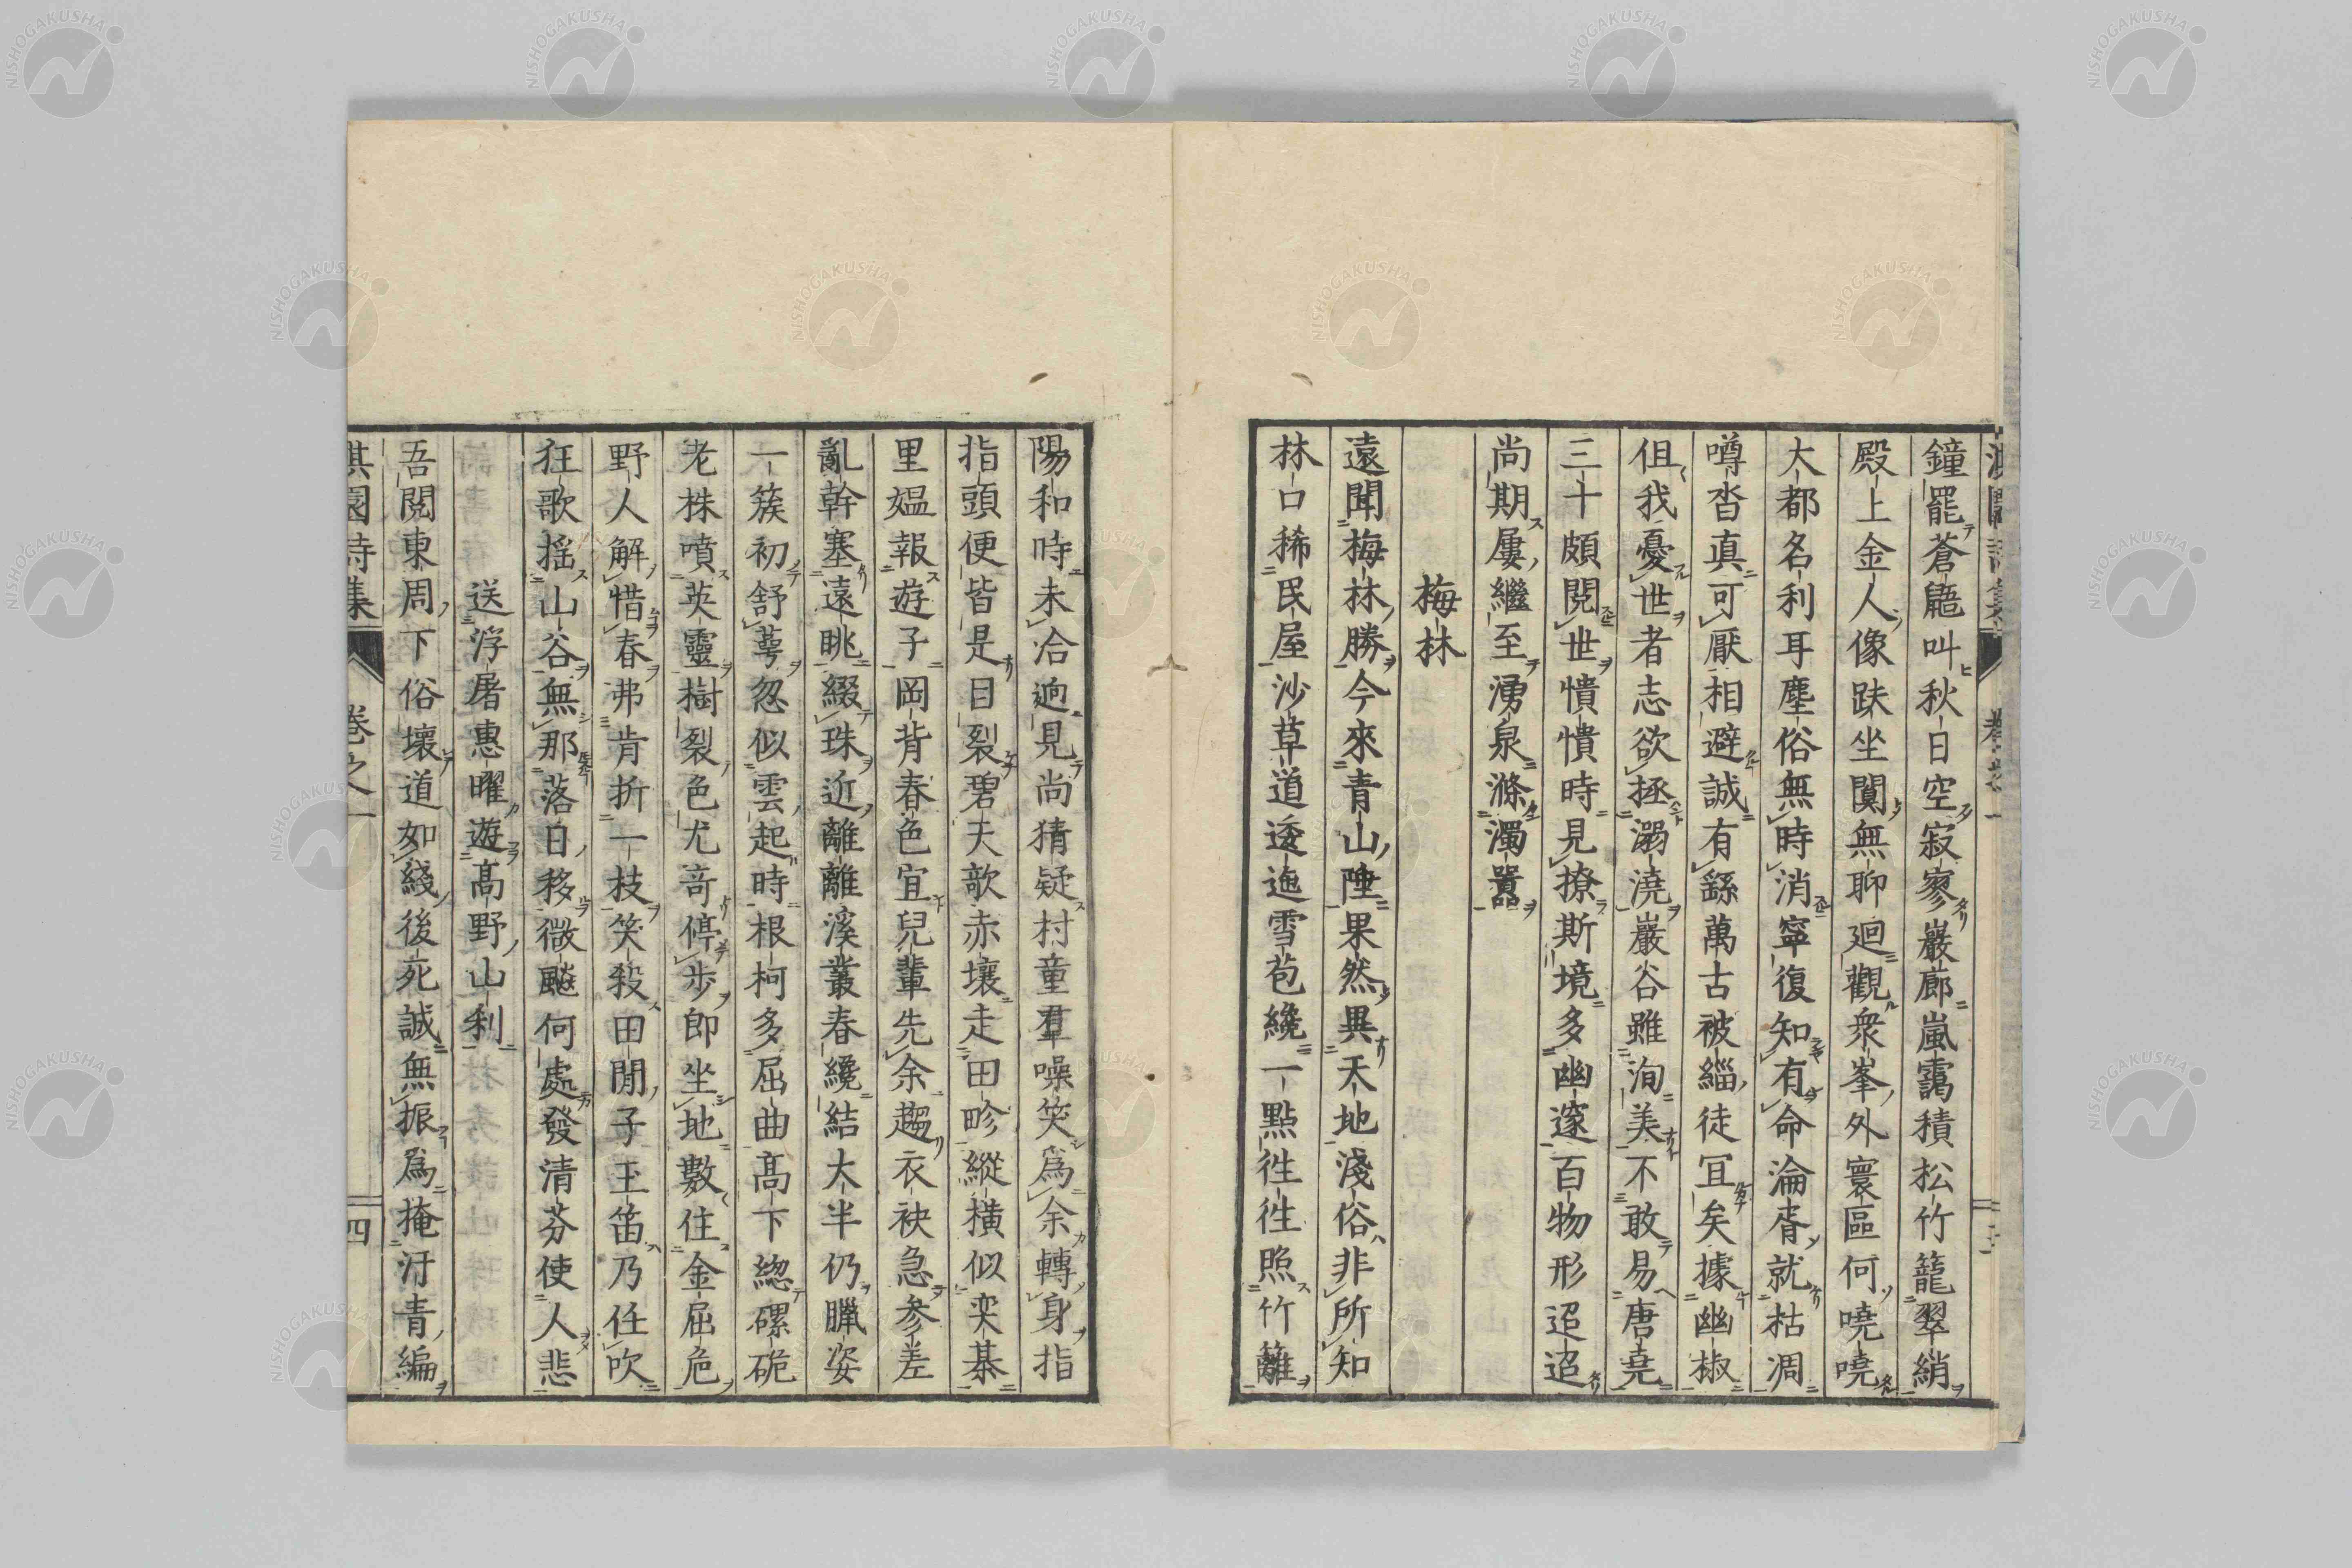 鐘罷蒼鼯叫秋日空寂寥巖廊嵐靄積松竹籠翠綃
殿上金人像趺坐闃無聊迴觀衆峯外寰區何嘵嘵
大都名利耳塵俗無時消寧復知有命淪胥就枯凋
噂沓真可厭相避誠有繇萬古被緇徒冝矣據幽椒
伹我憂世者志欲拯溺澆巖谷雖洵美不敢易唐堯
三十頗閲世憒憒時見撩斯境多幽邃百物形迢迢
尚期屢繼至湧泉滌濁嚣
梅林
遠聞梅林勝今來青山陲果然異天地淺俗非所知
林口稀民屋沙草道逶迤雪苞纔一點徃徃照竹籬
陽和時未洽逈見尚猜疑村童羣噪笑爲余轉身指
指頭便皆是目裂碧天欹赤壤走田畛縱橫似奕棊
里媼報遊子岡背春色宜兒輩先余趨衣袂急參差
亂幹塞遠眺綴珠近離離溪叢春纔結大半仍臘姿
一簇初舒蕚忽似雲起時根柯多屈曲高下緫磥硊
老株噴英靈樹裂色尤竒停步即坐地數住金屈卮
野人解惜春弗肯折一枝笑殺田間子玉笛乃任吹
狂歌揺山谷無那落日移微飈何處發清芬使人悲
送浮屠惠曜遊高野山利
吾閲東周下俗壞道如綫後死誠無振爲掩汗青編
淇園詩集 卷之一 四